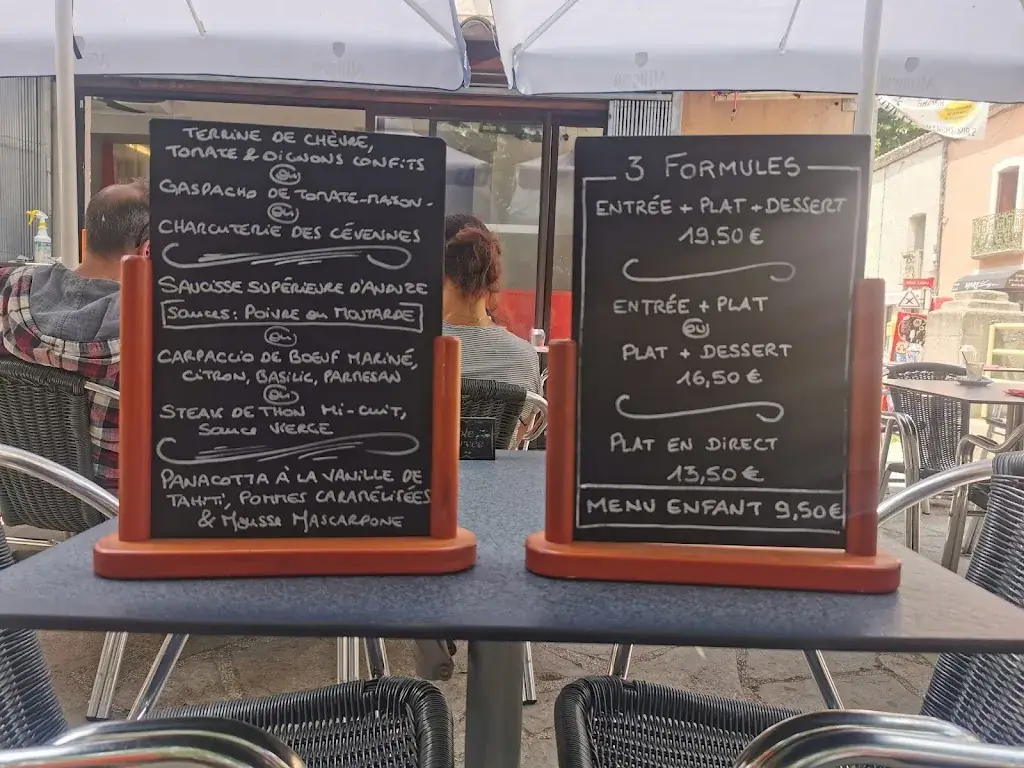 TERRINE DE CHÈVRE,
TOMATE & OIGNONS CONFITS
OU
GASPACHO DE TOMATE-MAISON-
OU
CHARCUTERIE DES CÉVENNES
SAUCISSE SUPÉRIEURE D'ANDUZE
SAUCES: POIVRE OU MOUTARDE
OU
CARPACCIO DE BOEUF MARINÉ,
CITRON, BASILIC, PARMESAN
OU
STEAK DE THON MI-CUIT,
SAUCE VIERGE
PANACOTTA À LA VANILLE DE
TAHITI, POMMES CARAMÉLISÉES
& MOUSSE MASCARPONE
3 FORMULES
ENTRÉE + PLAT + DESSERT
19,50 €
ENTRÉE + PLAT
OU
PLAT + DESSERT
16,50 €
PLAT EN DIRECT
13,50 €
MENU ENFANT 9,50€